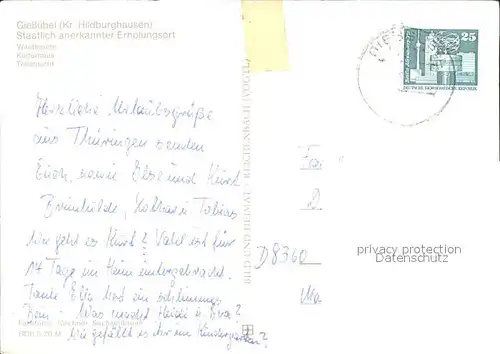 Gießübel (Kr. Hildburghausen)
Staatlich anerkannter Erholungsort
Waldbreite
Kulturhaus
Teilansicht
Herzliche Urlaubsgrüße
aus Thüringen senden
Euch, sowie Else und Kurt
Brünhilde, Lothar u. Tobias
Wie geht es Kurt? Vatel ist für
14 Tage im Heim untergebracht.
Tante Ella hat ein schlimmes
Bein - Was macht Heidi u. Eva?
Wie gefällt es ihr im Kindergarten?
BILD UND HEIMAT REICHENBACH (VOGTL)
25
DEUTSCHE DEMOKRATISCHE REPUBLIK
Fa
D
D 8360
Ma
privacy protection
Datenschutz